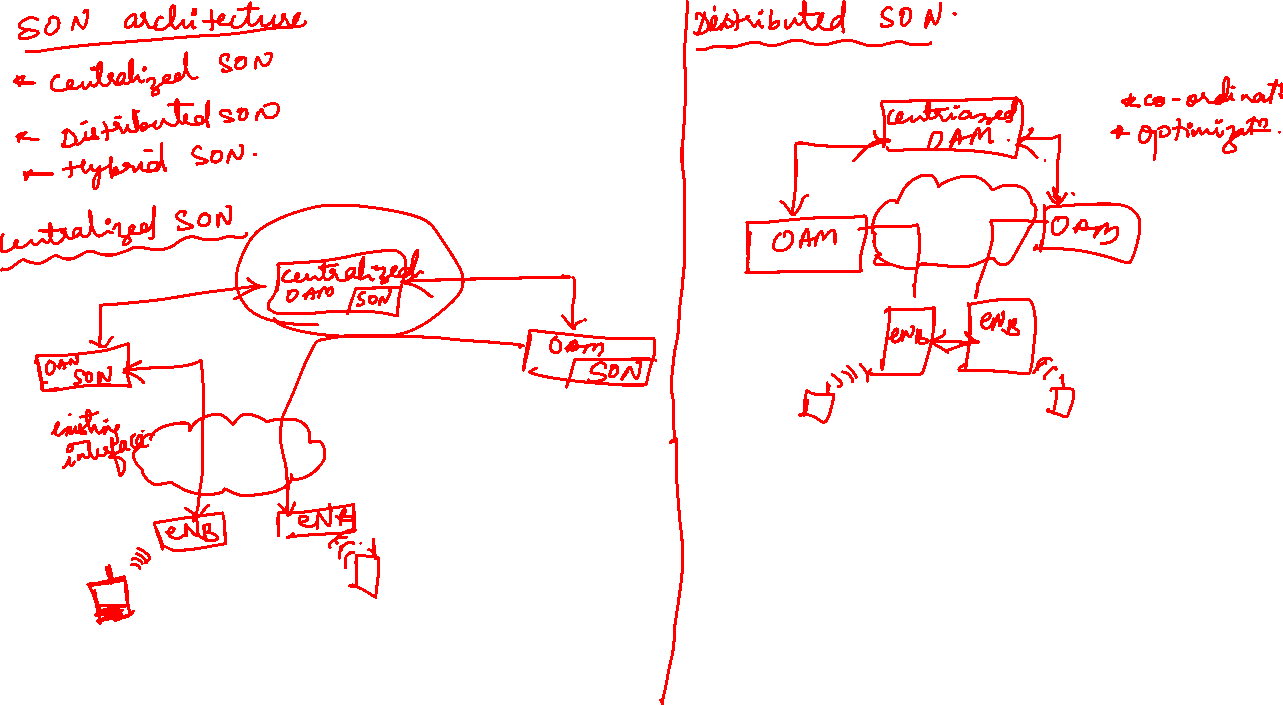 SON architecture
* Centralized SON
* Distributed SON
* Hybrid SON.
Centralized SON
Centralized
OAM
SON
OAM
SON
OAM
SON
existing
interface
eNB
eNB
Distributed SON.
* co-ordinati
* optimizatn.
OAM
OAM
OAM
eNB
eNB